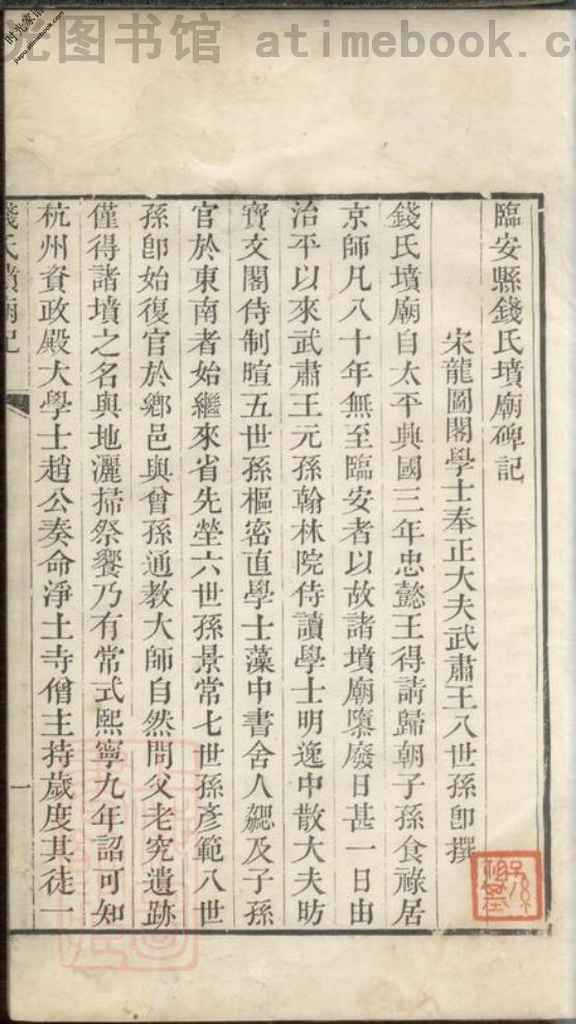 时光图书馆 atimebook.c
臨安縣錢氏墳廟碑記
宋龍圖閣學士奉正大夫武肅王八世孫卽撰
錢氏墳廟自太平興國三年忠懿王得請歸朝子孫食祿居
京師凡八十年無至臨安者以故諸墳廟隳廢日甚一日由
治平以來武肅王元孫翰林院侍讀學士明逸中散大夫昉
寶文閣侍制暄五世孫樞密直學士藻中書舍人勰及子孫
官於東南者始繼來省先塋六世孫景常七世孫彥範八世
孫卽始復官於鄉邑與曾孫通教大師自然問父老究遺跡
僅得諸墳之名與地灑掃祭饗乃有常式熙寧九年詔可知
杭州資政殿大學士趙公奏命淨土寺僧主持歲度其徒一
錢氏墳廟記
一